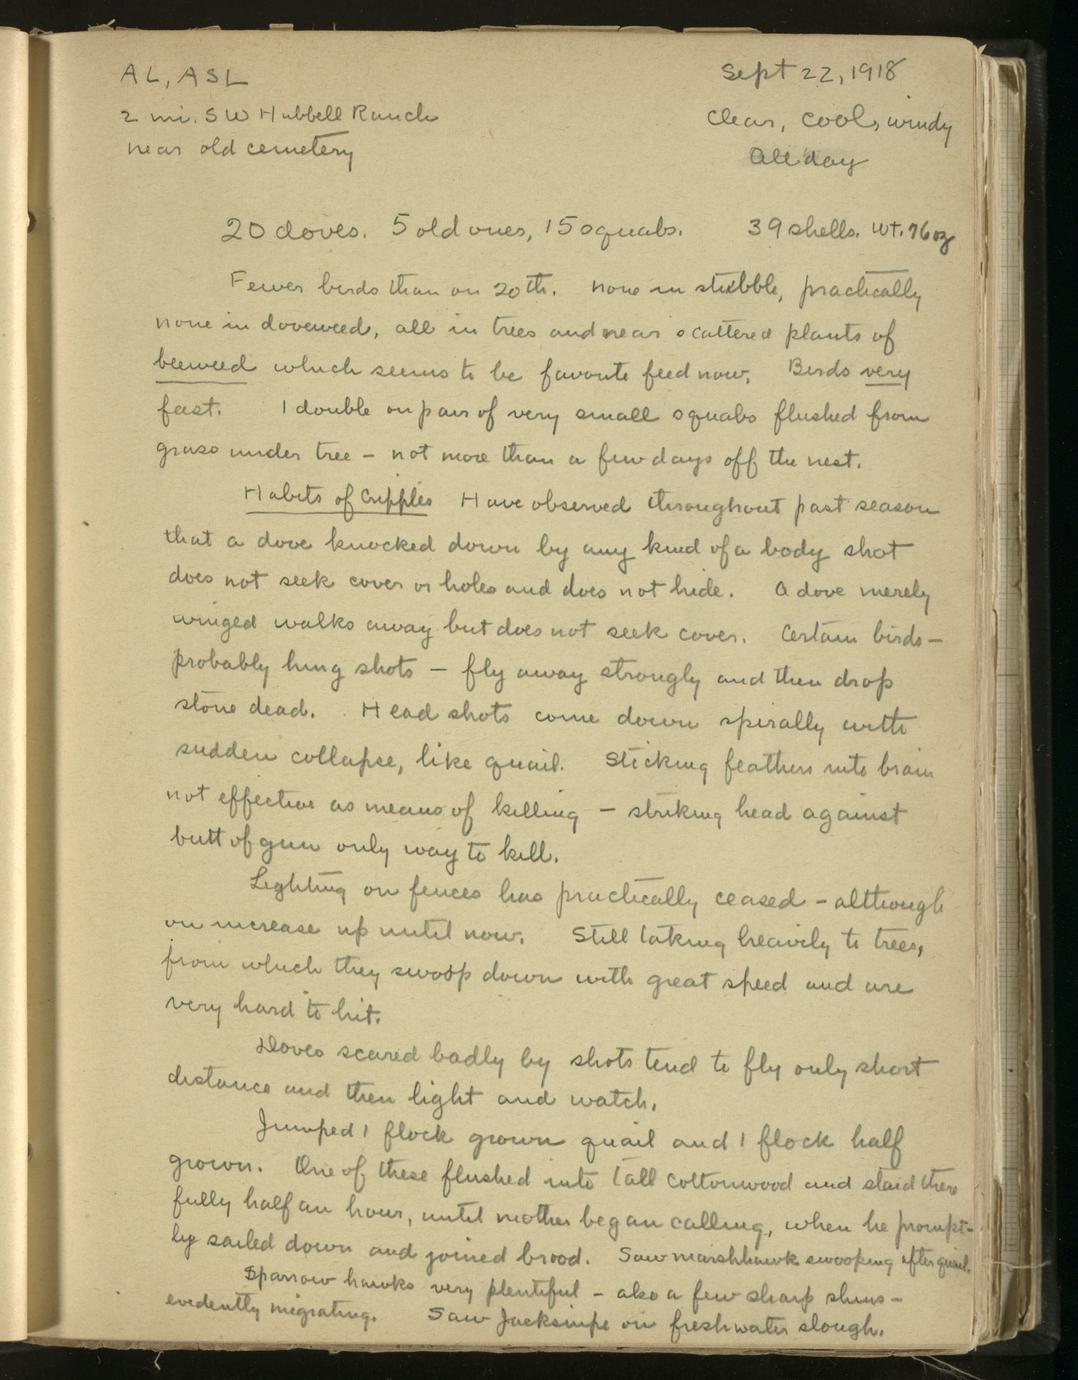 AL, ASL
Sept 22, 1918
2 mi. SW Hubbell Ranch
clear, cool, windy
near old cemetery
All day
20 doves. 5 old ones, 15 squabs. 39 shells. Wt. 76 oz
Fewer birds than on 20th. None in stubble, practically
none in doveweed, all in trees and near scattered plants of
beeweed which seems to be favorite feed now. Birds very
fast. 1 double on pair of very small squabs flushed from
grass under tree - not more than a few days off the nest.
Habits of Cripples Have observed throughout past season
that a dove knocked down by any kind of a body shot
does not seek cover or holes and does not hide. A dove merely
winged walks away but does not seek cover. Certain birds -
probably lung shots - fly away strongly and then drop
stone dead. Head shots come down spirally with
sudden collapse, like quail. Sticking feathers into brain
not effective as means of killing - striking head against
butt of gun only way to kill.
Lighting on fences has practically ceased - although
on increase up until now. Still taking heavily to trees,
from which they swoop down with great speed and are
very hard to hit.
Doves scared badly by shots tend to fly only short
distance and then light and watch.
Jumped 1 flock grown quail and 1 flock half
grown. One of these flushed into tall cottonwood and staid there
fully half an hour, until mother began calling, when he prompt-
ly sailed down and joined brood. Saw marshhawk swooping after quail.
Sparrow hawks very plentiful - also a few sharp shins -
evidently migrating. Saw Jacksnipe on freshwater slough.